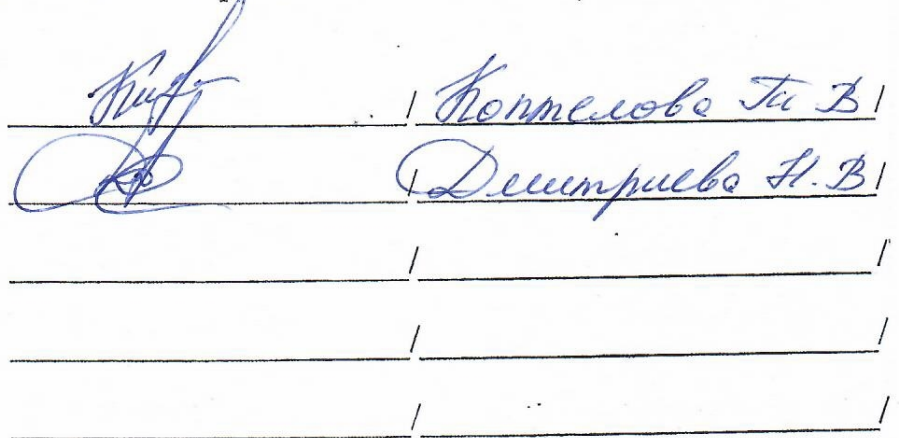 / Коптелова Т. В /
/ Дмитриева Н. В /
/ /
/ /
/ /